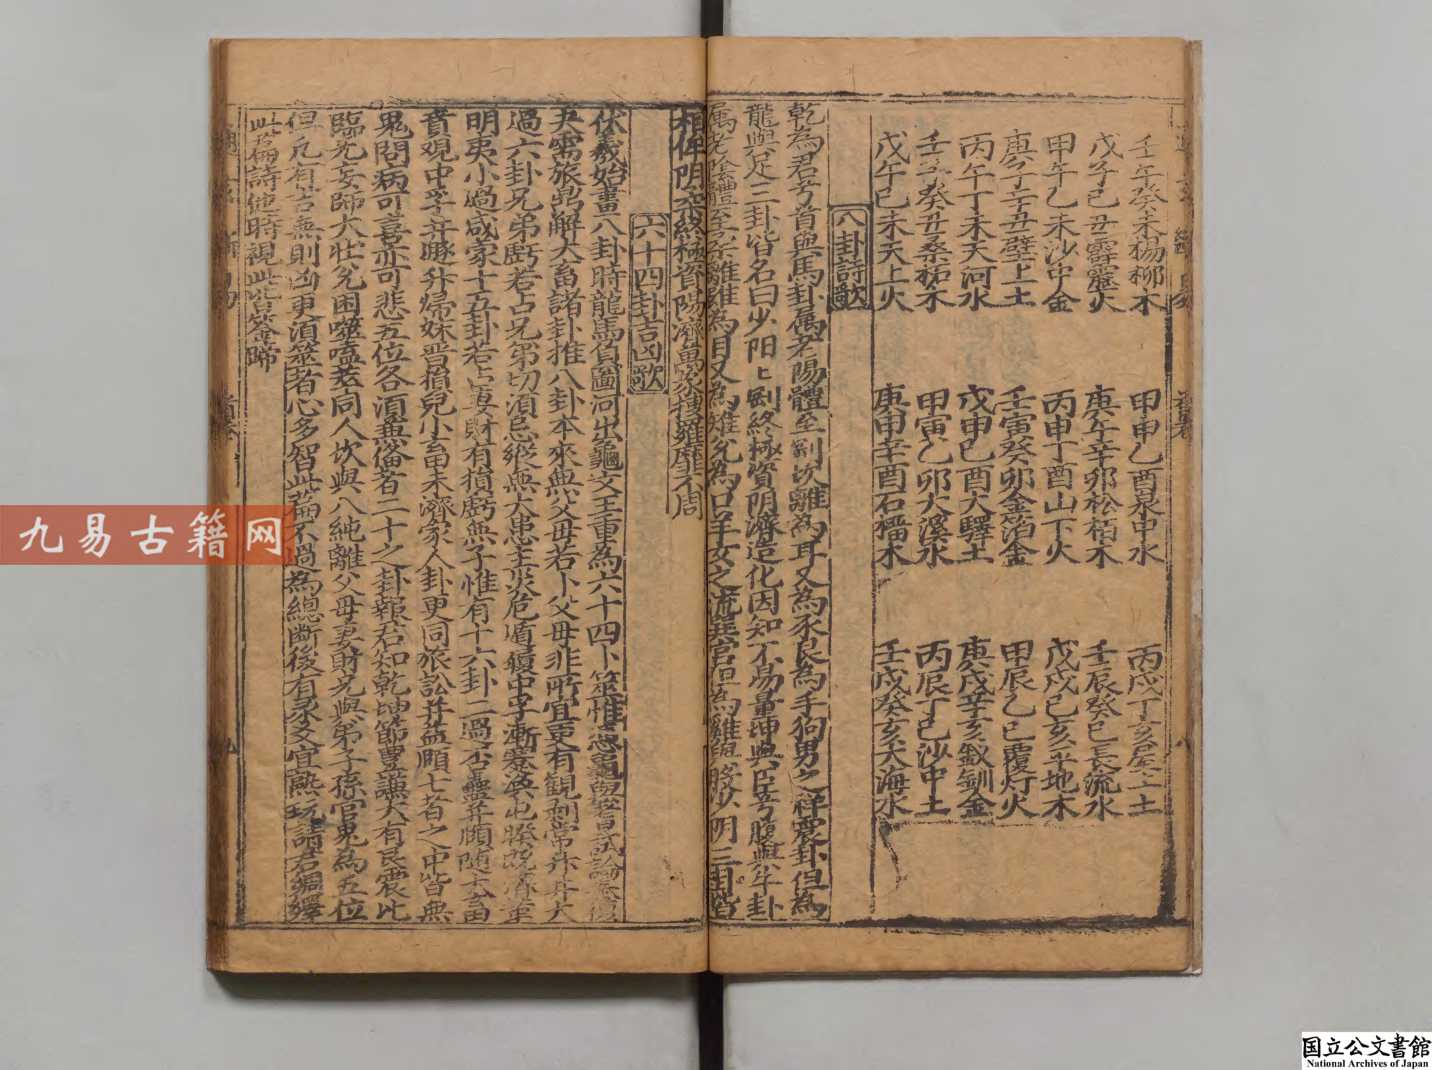 壬午癸未楊柳木
甲申乙酉泉中水
丙戌丁亥屋上土
戊子己丑霹靂火
庚午辛卯松栢木
壬辰癸巳長流水
甲午乙未沙中金
丙申丁酉山下火
戊戌己亥平地木
庚子辛丑壁上土
壬寅癸卯金箔金
甲辰乙巳覆灯火
丙午丁未天河水
戊申己酉大驛土
庚戌辛亥釵釧金
壬子癸丑桑柘木
甲寅乙卯大溪水
丙辰丁巳沙中土
戊午己未天上火
庚申辛酉石榴木
壬戌癸亥大海水
八卦詩歌
乾為君兮首與馬卦属老陽體至剛坎離為耳又為豕艮為手狗男之祥震卦但為
龍與足三卦皆名曰少阳上剛終極資阴濟造化因知不易量坤與臣兮腹與牛卦
属老陰體至柔離雖為目又為雉兌為口羊女之流巽宮但為雞與股少阴三卦皆
相侔阴柔終極資陽濟萬象搜羅靡不周
六十四卦吉凶歌
伏羲始畫八卦時龍馬負圖河出龜文王重為六十四卜筮惟憑龜與蓍試論
夬需旅鼎解大畜諸卦推八卦本來無父母若卜父母非所宜更有観剥常并井大
過六卦兄弟虧若占兄弟切須忌縱無大患主災危遁
明夷小過咸蒙十五卦若占妻財有損虧無子惟有十六卦二過否蠱并頤随大畜
賁观中孚并豚升歸妹晋損兒小畜未濟家人卦更同旅訟并益願七者之中皆無
鬼問病可喜亦可悲五位各須無偹者二十之卦報君知乾坤節豐謙大有艮震比
臨无妄師大壮兌困噬嗑恙同人坎與八純離父母妻財兄與弟子孫官鬼為五位
但凡有吉無則凶更湏筮者心多智此篇不過為總断後有爻宜熟玩請君綢繹
此篇詩便時視此皆筌蹄
九易古籍网
国立公文書館
National Archives of Japan